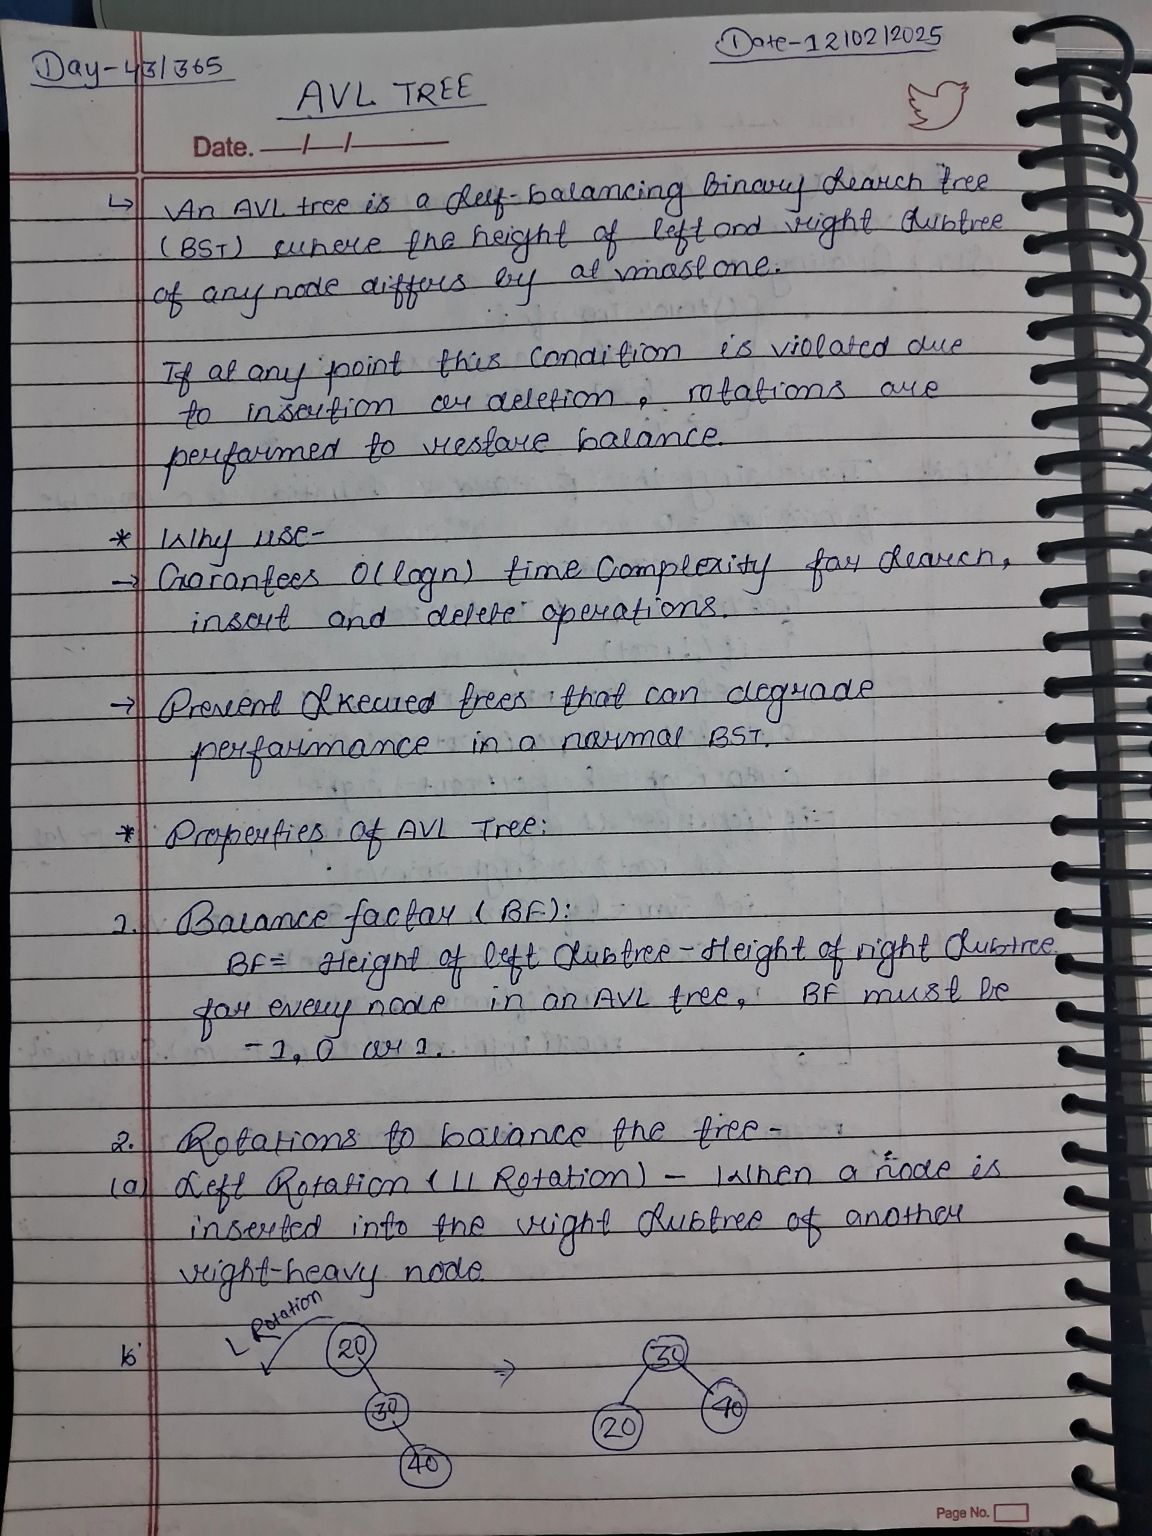 Day-43/365
Date-12/02/2025
AVL TREE
Date. —/—/———
↳ An AVL tree is a self-balancing Binary Search tree
(BST) where the height of left and right subtree
of any node differs by at most one.
If at any point this condition is violated due
to insertion or deletion, rotations are
performed to restore balance.
* Why use-
→ Garantees O(logn) time Complexity for search,
insert and delete operations.
→ Prevent Skewed trees that can degrade
performance in a normal BST.
* Properties of AVL Tree:
1. Balance factor (BF):
BF= Height of left Subtree - Height of right Subtree
for every node in an AVL tree, BF must be
-1, 0 or 1.
2. Rotations to balance the tree-
(a) Left Rotation (LL Rotation) - When a node is
inserted into the right subtree of another
right-heavy node
L Rotation
20 ⇒ 30
30 20 40
40
Page No.